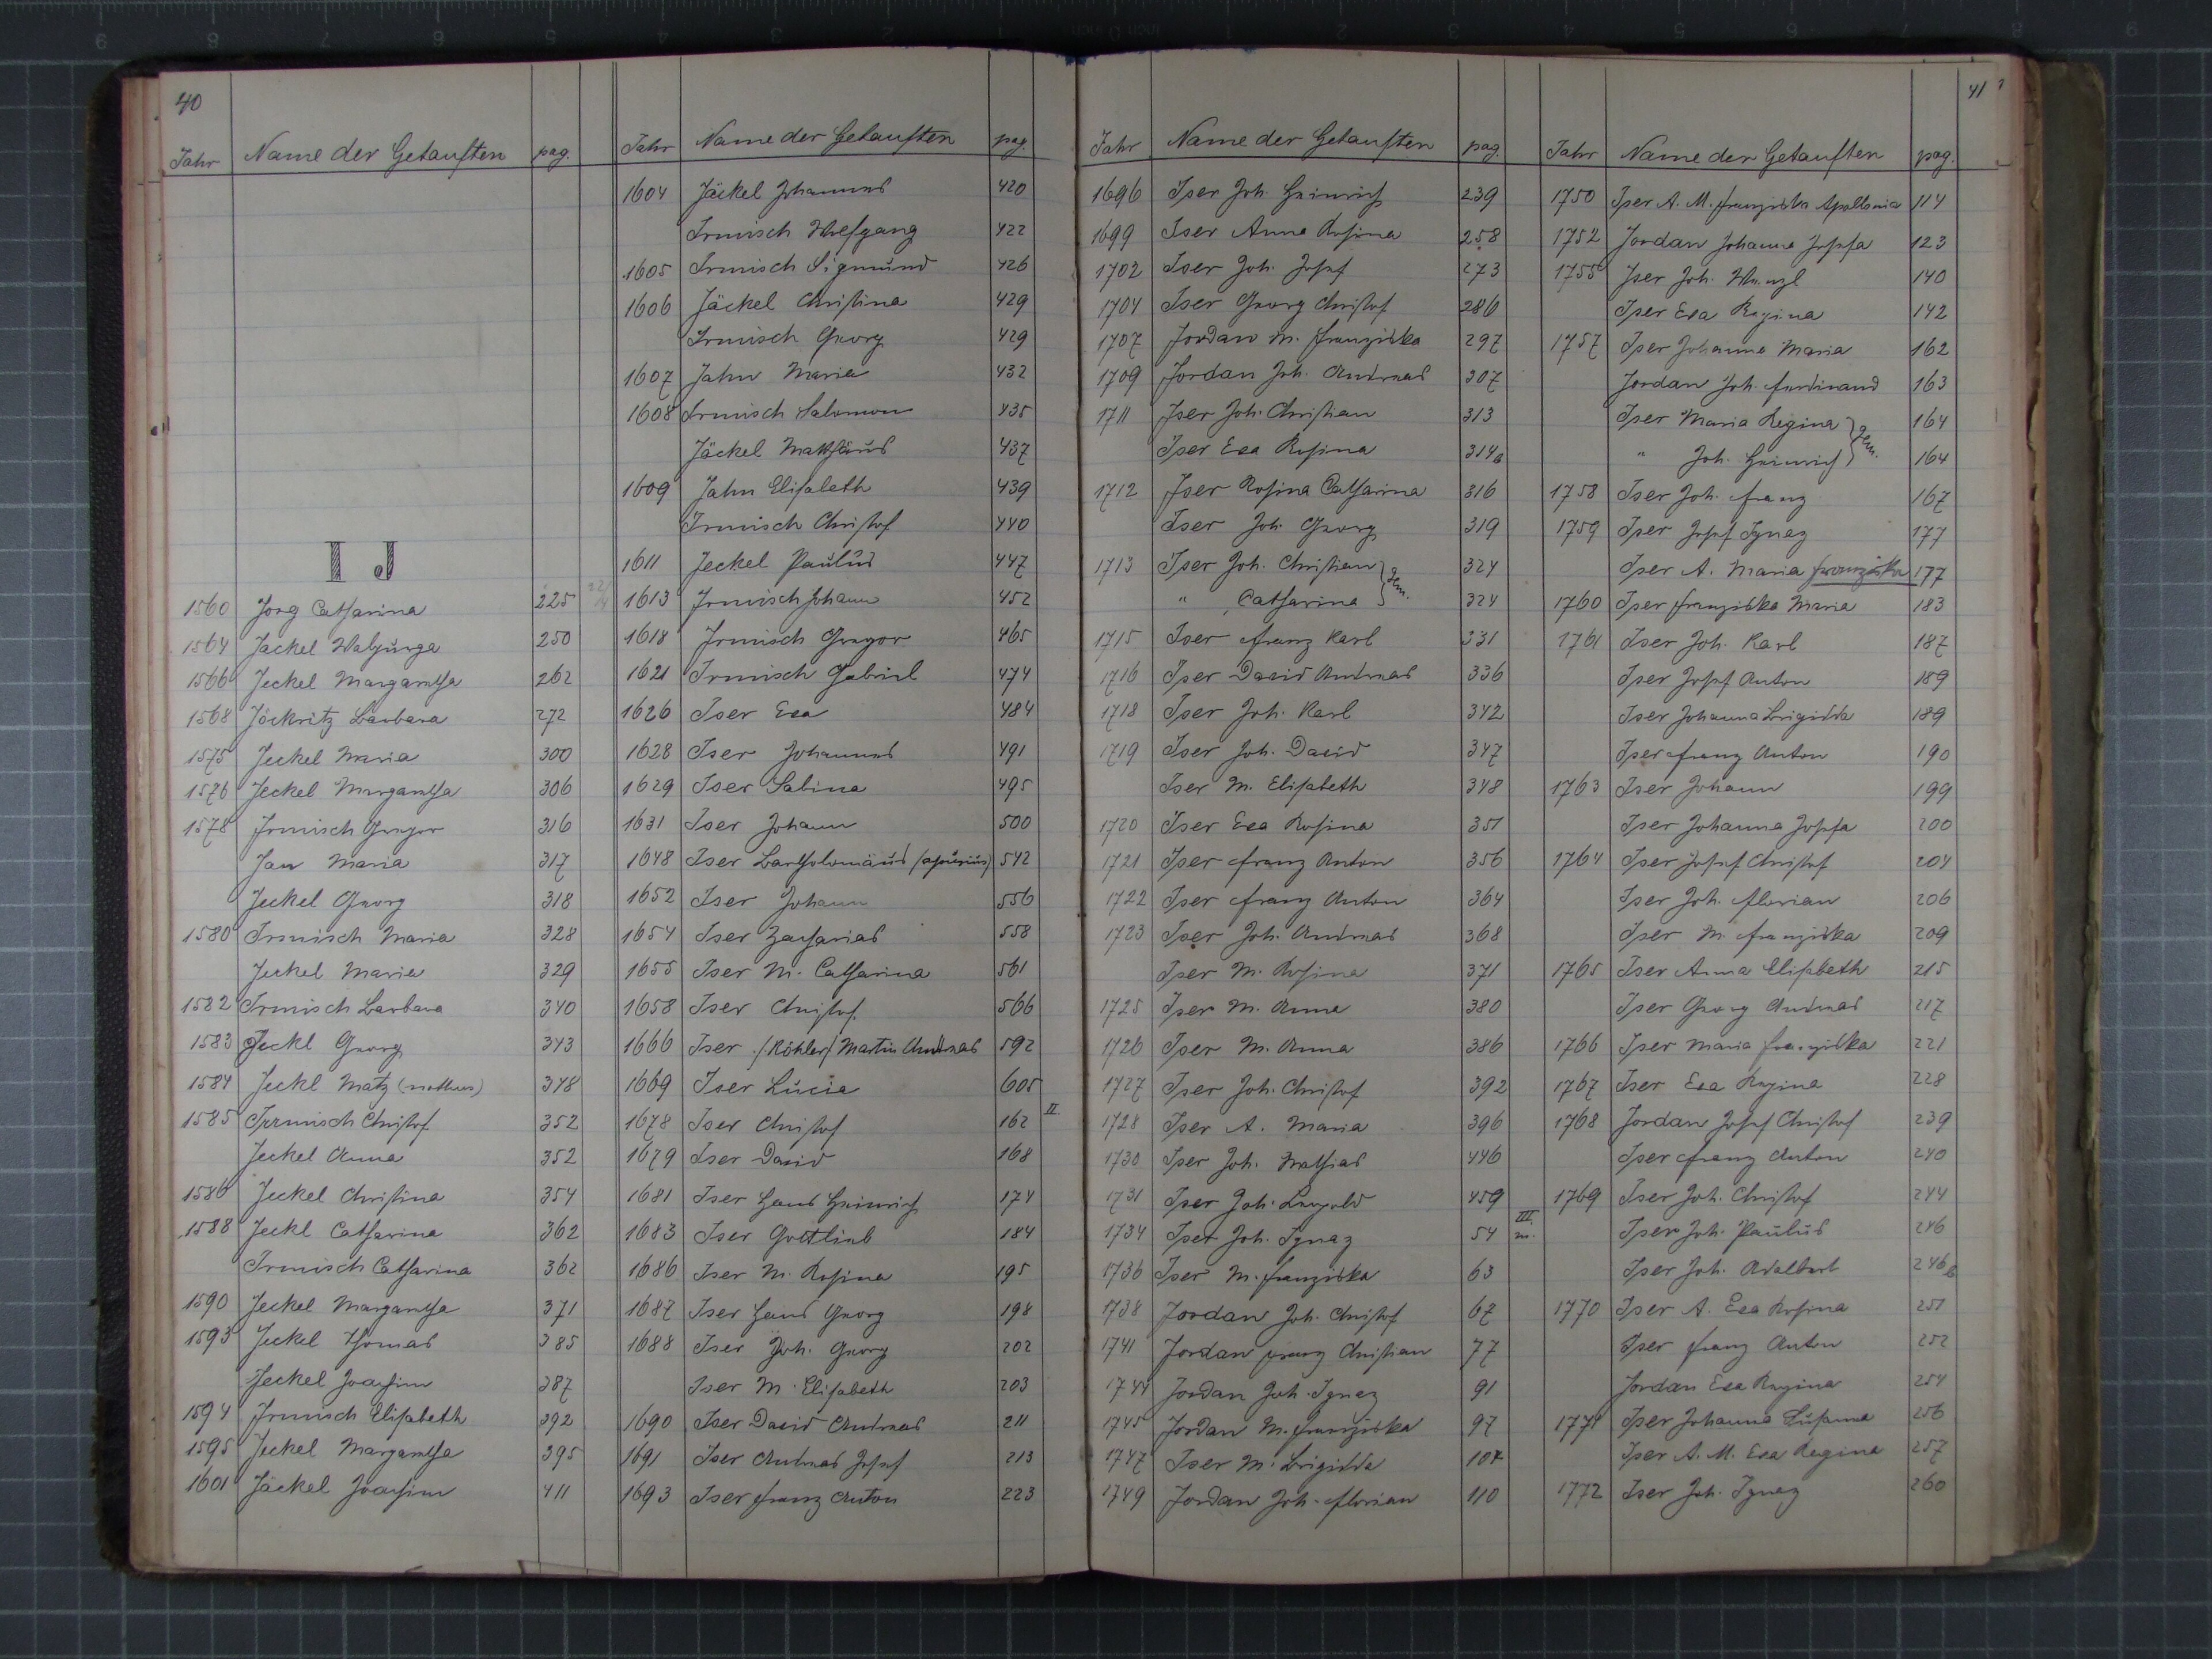 40
Jahr Name der Getauften pag.
I J
1560 Jorg Catharina 225
1564 Jackel Walpurga 250
1566 Jeckel Margaretha 262
1568 Jöckritz Barbara 272
1575 Jeckel Maria 300
1576 Jeckel Margaretha 306
1578 Irmisch Gregor 316
Jan Maria 317
Jeckel Georg 318
1580 Irmisch Maria 328
Jeckel Maria 329
1582 Irmisch Barbara 340
1583 Jeckl Georg 343
1584 Jeckl Matz (nothus) 348
1585 Irrmisch Christof 352
Jeckel Anna 352
1586 Jeckel Christina 354
1588 Jeckl Catharina 362
Irmisch Catharina 362
1590 Jeckel Margaretha 371
1593 Jeckel Thomas 385
Jeckel Joachim 387
1594 Irmisch Elisabeth 392
1595 Jeckel Margaretha 395
1601 Jäckel Joachim 411
Jahr Name der Getauften pag.
1604 Jäckel Johannes 420
Irmisch Wolfgang 422
1605 Irmisch Sigmund 426
1606 Jäckel Christina 429
Irmisch Georg 429
1607 Jahn Maria 432
1608 Irmisch Salomon 435
Jäckel Matthäus 437
1609 Jahn Elisabeth 439
Irmisch Christof 440
1611 Jeckel Paulus 447
1613 Irmisch Johann 452
1618 Irmisch Gregor 465
1621 Irmisch Gabriel 474
1626 Iser Eva 484
1628 Iser Johannes 491
1629 Iser Sabina 495
1631 Iser Johann 500
1648 Iser Bartholomäus (spurius) 542
1652 Iser Johann 556
1654 Iser Zacharias 558
1655 Iser M. Catharina 561
1658 Iser Christof 566
1666 Iser /Köhler/ Martin Andreas 592
1669 Iser Lucia 605
1678 Iser Christof 162 II.
1679 Iser David 168
1681 Iser Hans Heinrich 174
1683 Iser Gottlieb 184
1686 Iser M. Rosina 195
1687 Iser Hans Georg 198
1688 Iser Joh. Georg 202
Iser M. Elisabeth 203
1690 Iser David Andreas 211
1691 Iser Andreas Josef 213
1693 Iser Franz Anton 223
Jahr Name der Getauften pag.
1696 Iser Joh. Heinrich 239
1699 Iser Anna Rosina 258
1702 Iser Joh. Josef 273
1704 Iser Georg Christof 286
1707 Jordan M. Franziska 297
1709 Jordan Joh. Andreas 307
1711 Iser Joh. Christian 313
Iser Eva Rosina 314b
1712 Iser Rosina Catharina 316
Iser Joh. Georg 319
1713 Iser Joh. Christian } gem. 324
" Catharina 324
1715 Iser Franz Karl 331
1716 Iser David Andreas 336
1718 Iser Joh. Karl 342
1719 Iser Joh. David 347
Iser M. Elisabeth 348
1720 Iser Eva Rosina 351
1721 Iser Franz Anton 356
1722 Iser Franz Anton 364
1723 Iser Joh. Andreas 368
Iser M. Rosina 371
1725 Iser M. Anna 380
1726 Iser M. Anna 386
1727 Iser Joh. Christof 392
1728 Iser A. Maria 396
1730 Iser Joh. Mathias 446
1731 Iser Joh. Leopold 459
1734 Iser Joh. Ignaz 54 III. m.
1736 Iser M. Franziska 63
1738 Jordan Joh. Christof 67
1741 Jordan Franz Christian 77
1744 Jordan Joh. Ignaz 91
1745 Jordan M. Franziska 97
1747 Iser M. Brigitta 104
1749 Jordan Joh. Florian 110
41
Jahr Name der Getauften pag.
1750 Iser A. M. Franziska Apollonia 114
1752 Jordan Johanna Josefa 123
1755 Iser Joh. Wenzl 140
Iser Eva Regina 142
1757 Iser Johanna Maria 162
Jordan Joh. Ferdinand 163
Iser Maria Regina } gem. 164
" Joh. Heinrich 164
1758 Iser Joh. Franz 167
1759 Iser Josef Ignaz 177
Iser A. Maria Franziska 177
1760 Iser Franziska Maria 183
1761 Iser Joh. Karl 187
Iser Josef Anton 189
Iser Johanna Brigitta 189
Iser Franz Anton 190
1763 Iser Johann 199
Iser Johanna Josefa 200
1764 Iser Josef Christof 204
Iser Joh. Florian 206
Iser M. Franziska 209
1765 Iser Anna Elisabeth 215
Iser Georg Andreas 217
1766 Iser Maria Franziska 221
1767 Iser Eva Regina 228
1768 Jordan Josef Christof 239
Iser Franz Anton 240
1769 Iser Joh. Christof 244
Iser Joh. Paulus 246
Iser Joh. Adalbert 246b
1770 Iser A. Eva Rosina 251
Iser Franz Anton 252
Jordan Eva Regina 254
1771 Iser Johanna Susanna 256
Iser A. M. Eva Regina 257
1772 Iser Joh. Ignaz 260